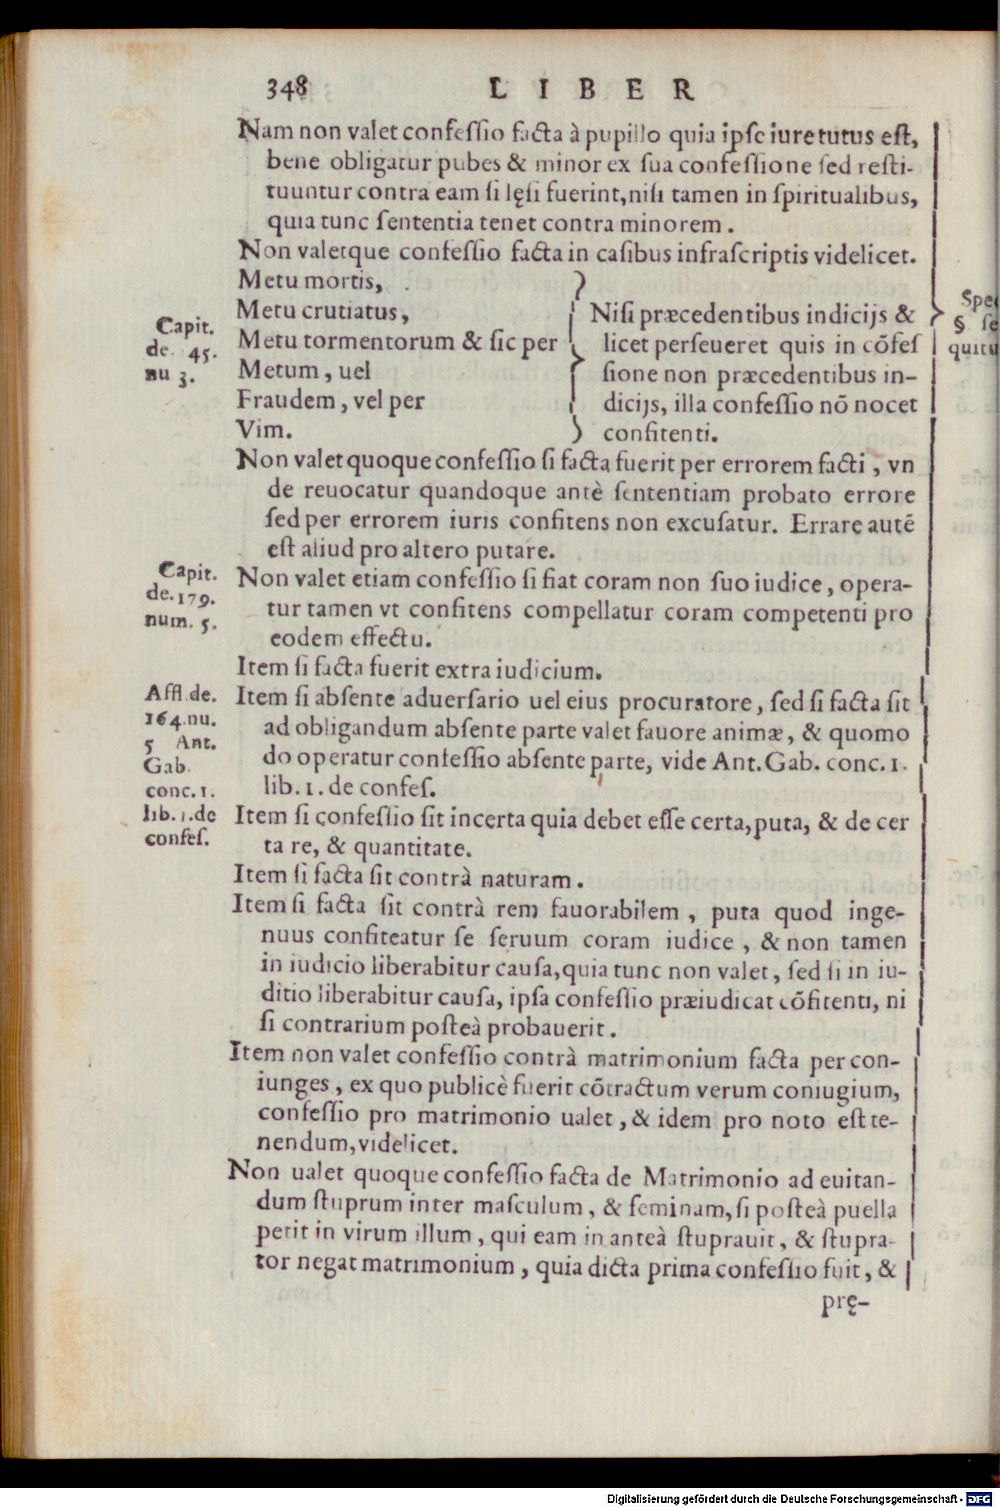 348 LIBER
Nam non valet confeſſio facta à pupillo quia ipſe iure tutus eſt,
bene obligatur pubes & minor ex ſua confeſſione ſed reſti-
tuuntur contra eam ſi lęſi fuerint, niſi tamen in ſpiritualibus,
quia tunc ſententia tenet contra minorem.
Non valetque confeſſio facta in caſibus infraſcriptis videlicet.
Metu mortis,
Metu crutiatus,
Metu tormentorum & ſic per
Metum, uel
Fraudem, vel per
Vim.
Niſi præcedentibus indicijs &
licet perſeueret quis in cõfeſ
ſione non præcedentibus in-
dicijs, illa confeſſio nõ nocet
confitenti.
Capit.
de. 45.
nu 3.
Non valet quoque confeſſio ſi facta fuerit per errorem facti, vn
de reuocatur quandoque antè ſententiam probato errore
ſed per errorem iuris confitens non excuſatur. Errare autẽ
eſt aliud pro altero putare.
Non valet etiam confeſſio ſi fiat coram non ſuo iudice, opera-
tur tamen vt confitens compellatur coram competenti pro
eodem effectu.
Capit.
de. 179.
num. 5.
Item ſi facta fuerit extra iudicium.
Item ſi abſente aduerſario uel eius procuratore, ſed ſi facta ſit
ad obligandum abſente parte valet fauore animæ, & quomo
do operatur confeſſio abſente parte, vide Ant. Gab. conc. 1.
lib. 1. de confeſ.
Affl. de.
164. nu.
5 Ant.
Gab.
conc. 1.
lib. 1. de
confeſ.
Item ſi confeſſio ſit incerta quia debet eſſe certa, puta, & de cer
ta re, & quantitate.
Item ſi facta ſit contrà naturam.
Item ſi facta ſit contrà rem fauorabilem, puta quod inge-
nuus confiteatur ſe ſeruum coram iudice, & non tamen
in iudicio liberabitur cauſa, quia tunc non valet, ſed ſi in iu-
ditio liberabitur cauſa, ipſa confeſſio præiudicat cõfitenti, ni
ſi contrarium poſteà probauerit.
Item non valet confeſſio contrà matrimonium facta per con-
iunges, ex quo publicè fuerit cõtractum verum coniugium,
confeſſio pro matrimonio ualet, & idem pro noto eſt te-
nendum, videlicet.
Non ualet quoque confeſſio facta de Matrimonio ad euitan-
dum ſtuprum inter maſculum, & feminam, ſi poſteà puella
petit in virum illum, qui eam in anteà ſtuprauit, & ſtupra-
tor negat matrimonium, quia dicta prima confeſſio fuit, &
prę-
Spec
§ ſe
quitu
Digitalisierung gefördert durch die Deutsche Forschungsgemeinschaft - DFG